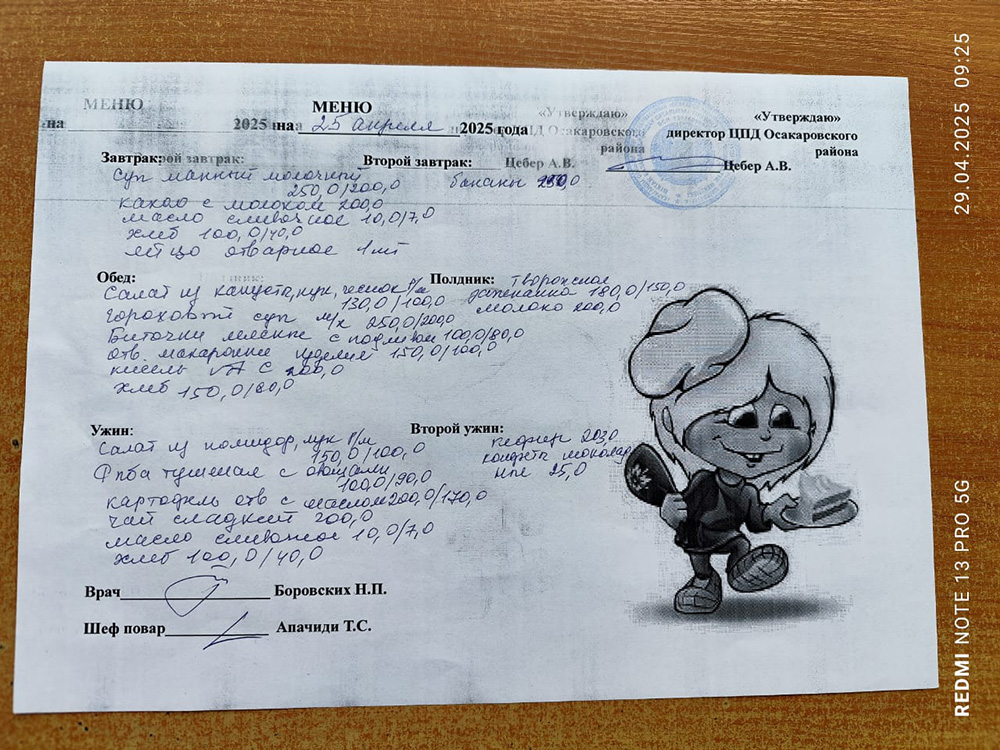 МЕНЮ
МЕНЮ
на 2025 на 25 апреля 2025 года
«Утверждаю»
ЦПД Осакаровского
района
Цебер А.В.
«Утверждаю»
директор ЦПД Осакаровского
района
Цебер А.В.
Завтрак:
Второй завтрак:
суп манный молочный
250,0/200,0
какао с молоком 200,0
масло сливочное 10,0/7,0
хлеб 100,0/40,0
яйцо отварное 1шт
бананы
Обед:
Салат из капусты, лук, чеснок р/м
130,0/100,0
гороховый суп м/к 250,0/200,0
Биточки мясные с подливом 100,0/80,0
отв. макаронные изделия 150,0/100,0
кисель с 200,0
хлеб 150,0/80,0
Полдник: творожная
запеканка 180,0/150,0
молоко 200,0
Ужин:
Салат из помидор, лук р/м
150,0/100,0
Рыба тушеная с овощами
100,0/90,0
картофель отв с маслом 200,0/170,0
чай сладкий 200,0
масло сливочное 10,0/7,0
хлеб 100,0/40,0
Второй ужин:
кефир
конфеты шоколад
ные 25,0
Врач Боровских Н.П.
Шеф повар Апачиди Т.С.
29.04.2025 09:25
REDMI NOTE 13 PRO 5G